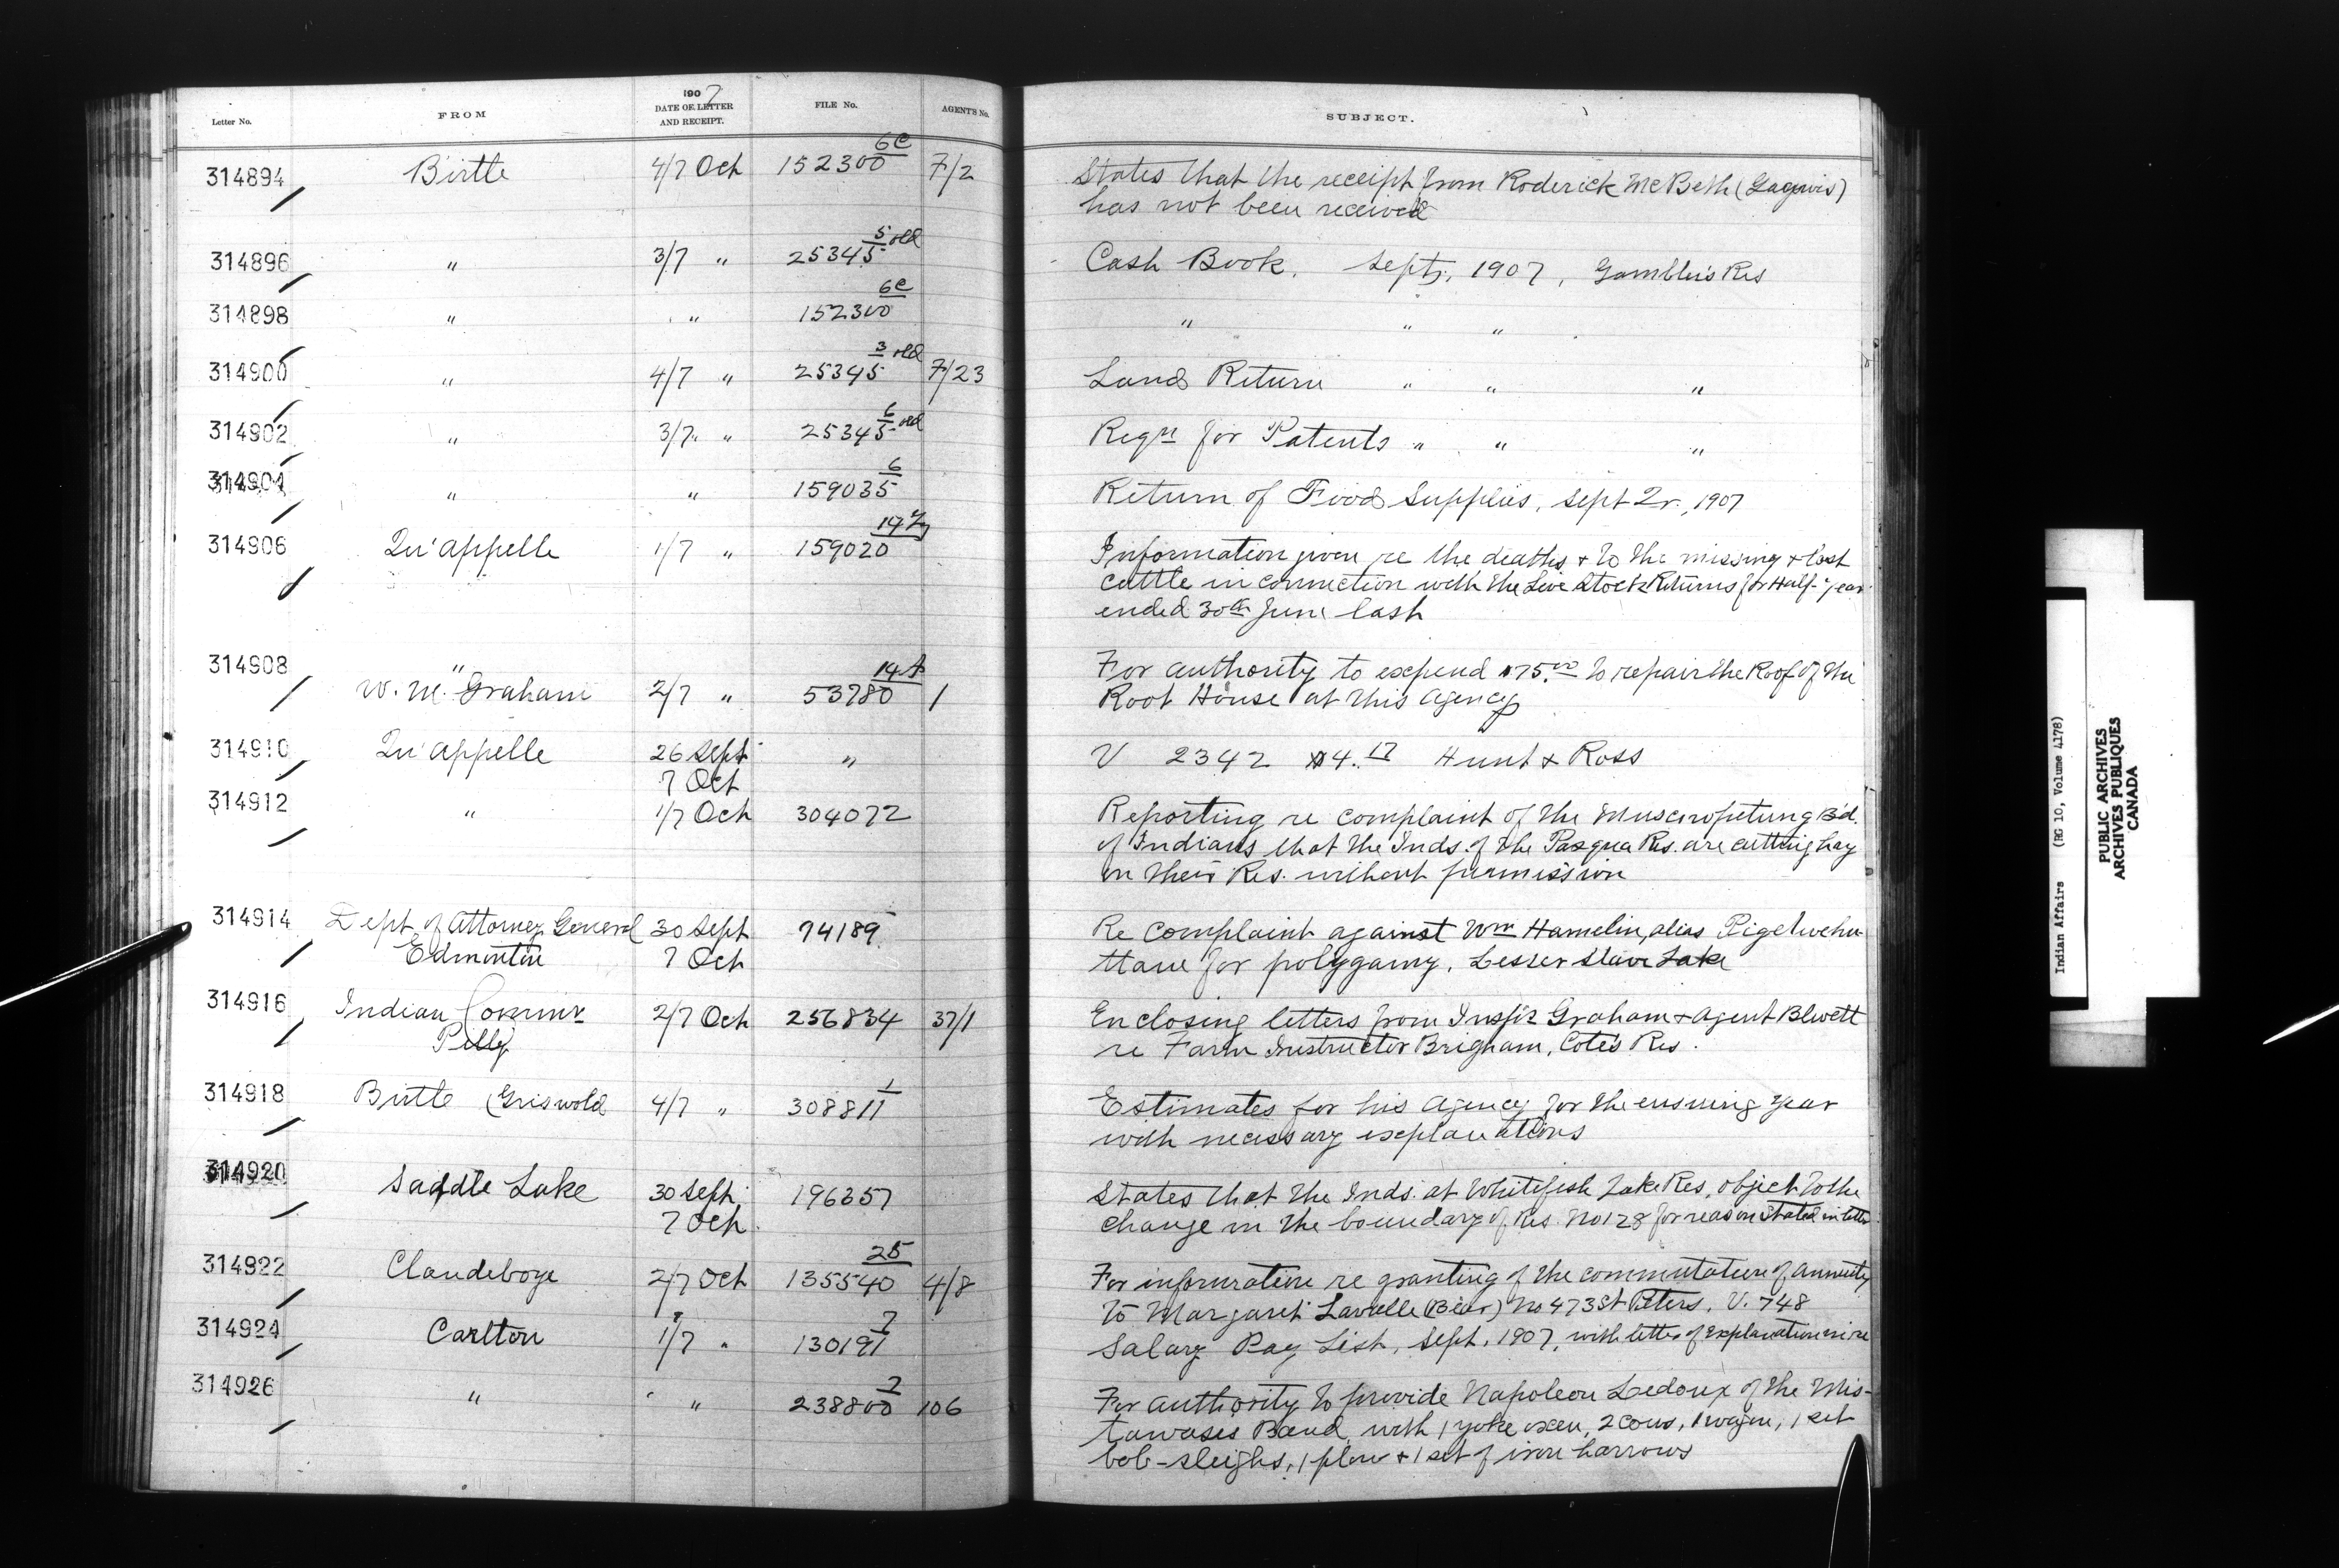 Letter No. FROM 1907 DATE OF LETTER AND RECEIPT. FILE No. AGENT'S No. SUBJECT.
314894 Birtle 4/7 Oct 152300 6C 7/2 States that the receipt from Roderick McBeth
has not been received
314896 " 3/7 " 25345 5 old Cash Book, Sept, 1907, Gamblers Res
314898 " " 152300 6C " " "
314900 " 4/7 " 25345 3 old 7/23 Land Return " " "
314902 " 3/7 " 25345 6 old Reqn for Patents " " "
314904 " " 159035 6 Return of Food Supplies, Sept Qr., 1907
314906 Qu'appelle 1/7 " 159020 Information given re the deaths & to the missing & lost
cattle in connection with the Live Stock Returns for Half-year
ended 30th June last
314908 " W. M. Graham 2/7 " 53780 14 1 For authority to expend $75.00 to repair the Roof of the
Root House at this Agency
314910 Qu'appelle 26 Sept " V 2342 $4.17 Hunt & Ross
7 Oct
314912 " 1/7 Oct 304072 Reporting re complaint of the Muscowpetung Bd.
of Indians that the Inds. of the Pasqua Res. are cutting hay
on their Res. without permission
314914 Dept. of Attorney General 30 Sept 74189 Re complaint against Wm Hamelin, alias
Edmonton 7 Oct for polygamy, Lesser Slave Lake
314916 Indian Commr 2/7 Oct 256834 37/1 Enclosing letters from Insp'r Graham & Agent Blwett
Pelly re Farm Instructor Brigham, Cote's Res.
314918 Birtle (Griswold 4/7 " 308811 1 Estimates for his Agency for the ensuing year
with necessary explanations
314920 Saddle Lake 30 Sept 196357 States that the Inds. at Whitefish Lake Res, object to the
7 Oct. change in the boundary of Res. No 128 for reason stated in letter
314922 Clandeboye 2/7 Oct 135540 25 4/8 For information re granting of the commutation of annuity
to Margaret Lavalle (Bear) No 473 St Peters, V. 748
314924 Carlton 1/7 " 130191 7 Salary Pay List, Sept, 1907, with letter of explanation in re
314926 " " 238800 2 106 For authority to provide Napoleon Ledoux of the Mis-
tawasis Band with 1 yoke oxen, 2 cows, 1 wagon, 1 set
bob-sleighs, 1 plow & 1 set of iron harrows
Indian Affairs (RG 10, Volume 4178)
PUBLIC ARCHIVES
ARCHIVES PUBLIQUES
CANADA